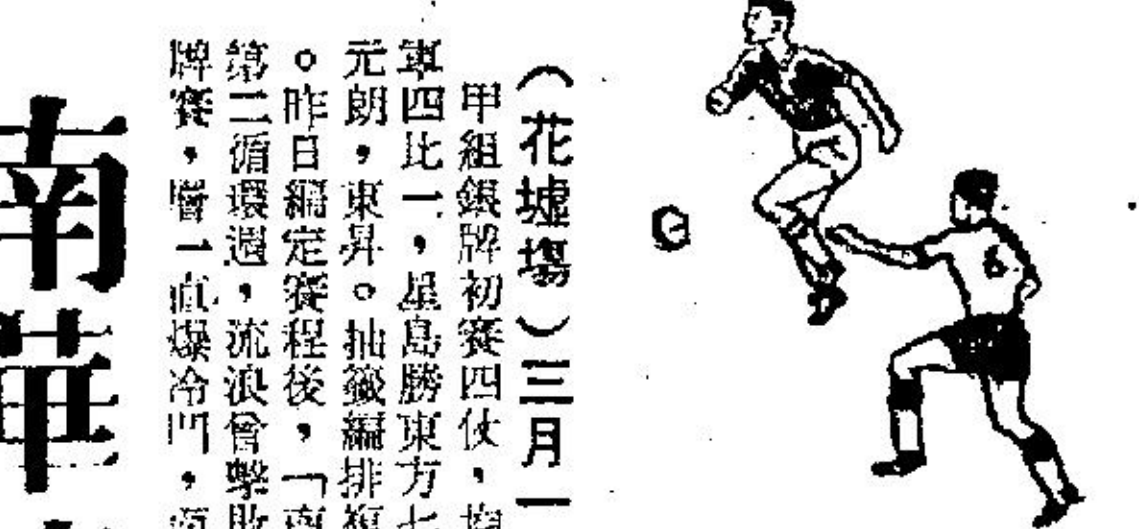 （花墟場）三月一
甲組銀牌初賽四伙，
軍四比一，星島勝東方七
元朗，東昇。抽籤編排
。昨日編定賽程後，「南
第二循環週，流浪曾擊敗
牌賽，層一直爆冷門，
南華
6